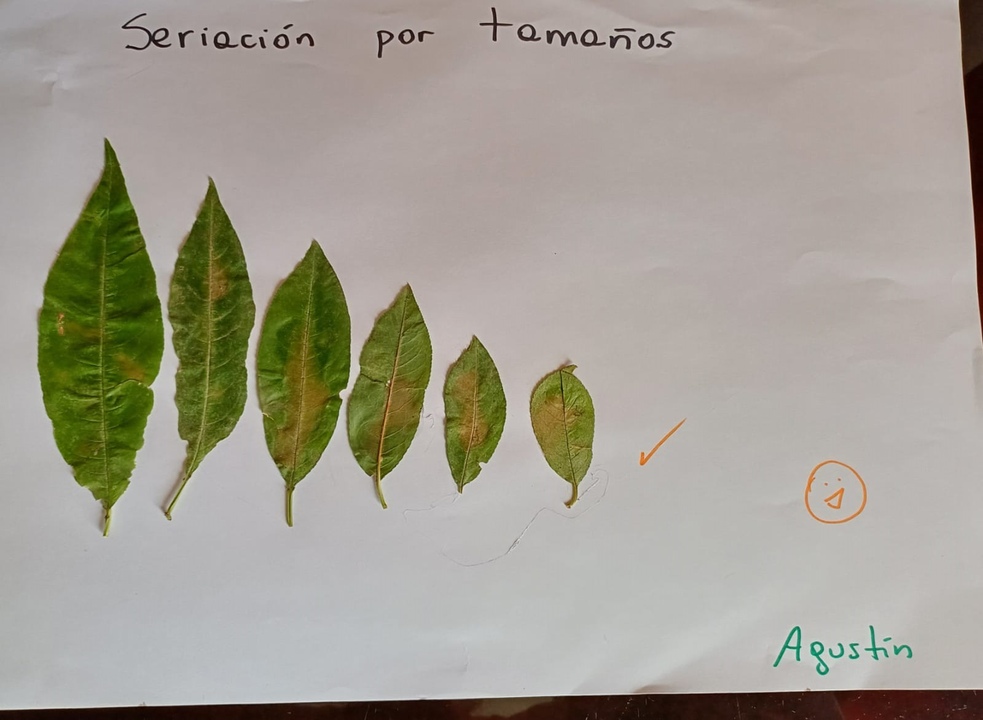 Seriación por tamaños
Agustín